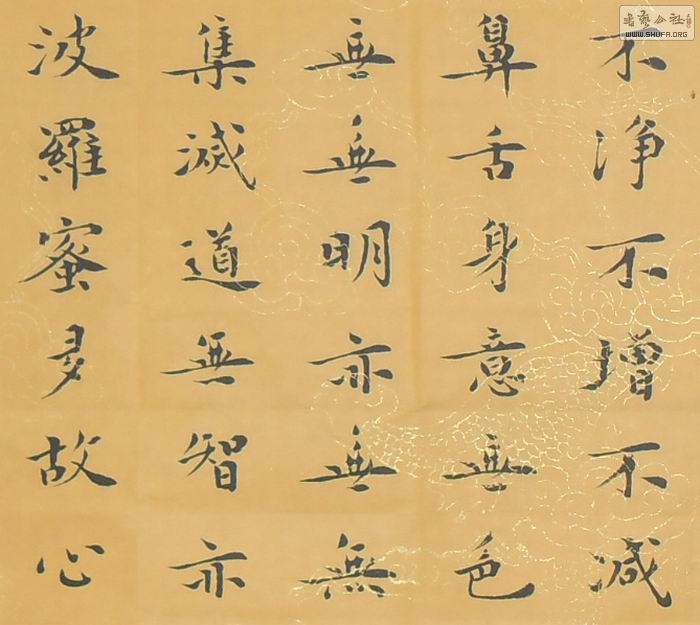 不净不增不減
鼻舌身意無色
無無明亦無無
集滅道無智亦
波羅蜜多故心
书艺公社
WWW.SHUFA.ORG